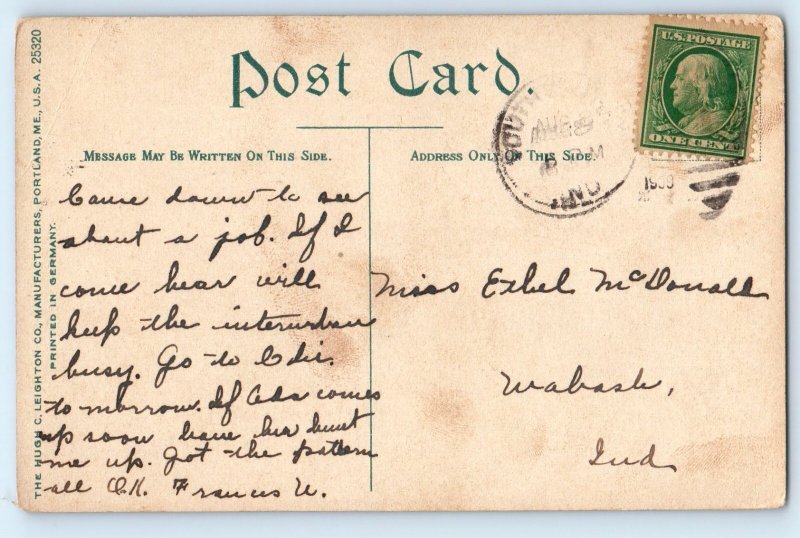 Post Card.
MESSAGE MAY BE WRITTEN ON THIS SIDE.
ADDRESS ONLY ON THIS SIDE
THE HUGH C. LEIGHTON CO., MANUFACTURERS, PORTLAND, ME., U.S.A. 25320
PRINTED IN GERMANY.
U.S. POSTAGE
ONE CENT
SOUTH
AUG
IND
Came down to see
about a job. If I
come hear will
keep the interurban
busy. Go to
to morrow. If Ada comes
up soon have her hunt
me up. Got the pattern
all O.K. Francis U.
Miss Ethel McDonald
Wabash,
Ind